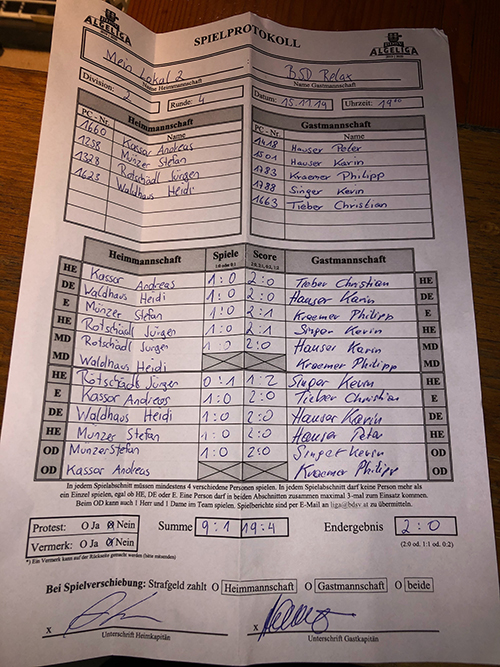 ALGELIGA
SPIELPROTOKOLL
ALGELIGA
Mein Lokal 2
BSD Relax
Name Heimmannschaft
Name Gastmannschaft
Division: 2 Runde: 4 Datum: 15.11.19 Uhrzeit:
Heimmannschaft Gastmannschaft
PC - Nr. Name PC - Nr. Name
1660 Kassar Andreas 1418 Hauser Peter
1258 Münzer Stefan 1501 Hauser Karin
1328 Rotschädl Jürgen 1783 Kraemer Philipp
1623 Waldhaus Heidi 1788 Singer Kevin
1663 Tieber Christian
Heimmannschaft Spiele Score Gastmannschaft
HE Kassar Andreas 1:0 2:0 Tieber Christian HE
DE Waldhaus Heidi 1:0 2:0 Hauser Karin DE
E Münzer Stefan 1:0 2:1 Kraemer Philipp E
HE Rotschädl Jürgen 1:0 2:1 Singer Kevin HE
MD Rotschädl Jürgen 1:0 2:0 Hauser Karin MD
MD Waldhaus Heidi Kraemer Philipp MD
HE Rotschädl Jürgen 0:1 1:2 Singer Kevin HE
E Kassar Andreas 1:0 2:0 Tieber Christian E
DE Waldhaus Heidi 1:0 2:0 Hauser Karin DE
HE Münzer Stefan 1:0 2:0 Hauser Peter HE
OD Münzer Stefan 1:0 2:0 Singer Kevin OD
OD Kassar Andreas Kraemer Philipp OD
In jedem Spielabschnitt müssen mindestens 4 verschiedene Personen spielen. In jedem Spielabschnitt darf keine Person mehr als
ein Einzel spielen, egal ob HE, DE oder E. Eine Person darf in beiden Abschnitten zusammen maximal 3-mal zum Einsatz kommen.
Beim OD kann auch 1 Herr und 1 Dame im Team spielen. Spielberichte sind per E-Mail an liga@bdsv.at zu übermitteln.
Protest: O Ja O Nein Summe 9:1 19:4 Endergebnis 2:0
Vermerk: O Ja O Nein (2:0 od. 1:1 od. 0:2)
*) Ein Vermerk kann auf der Rückseite gemacht werden (bitte ankreuzen)
Bei Spielverschiebung: Strafgeld zahlt O Heimmannschaft O Gastmannschaft O beide
x x
Unterschrift Heimkapitän Unterschrift Gastkapitän